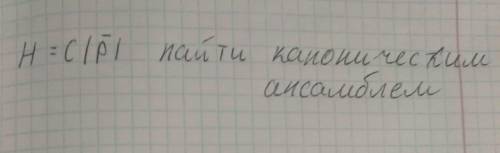 H = C|p̄| найти каноническим
ансамблем